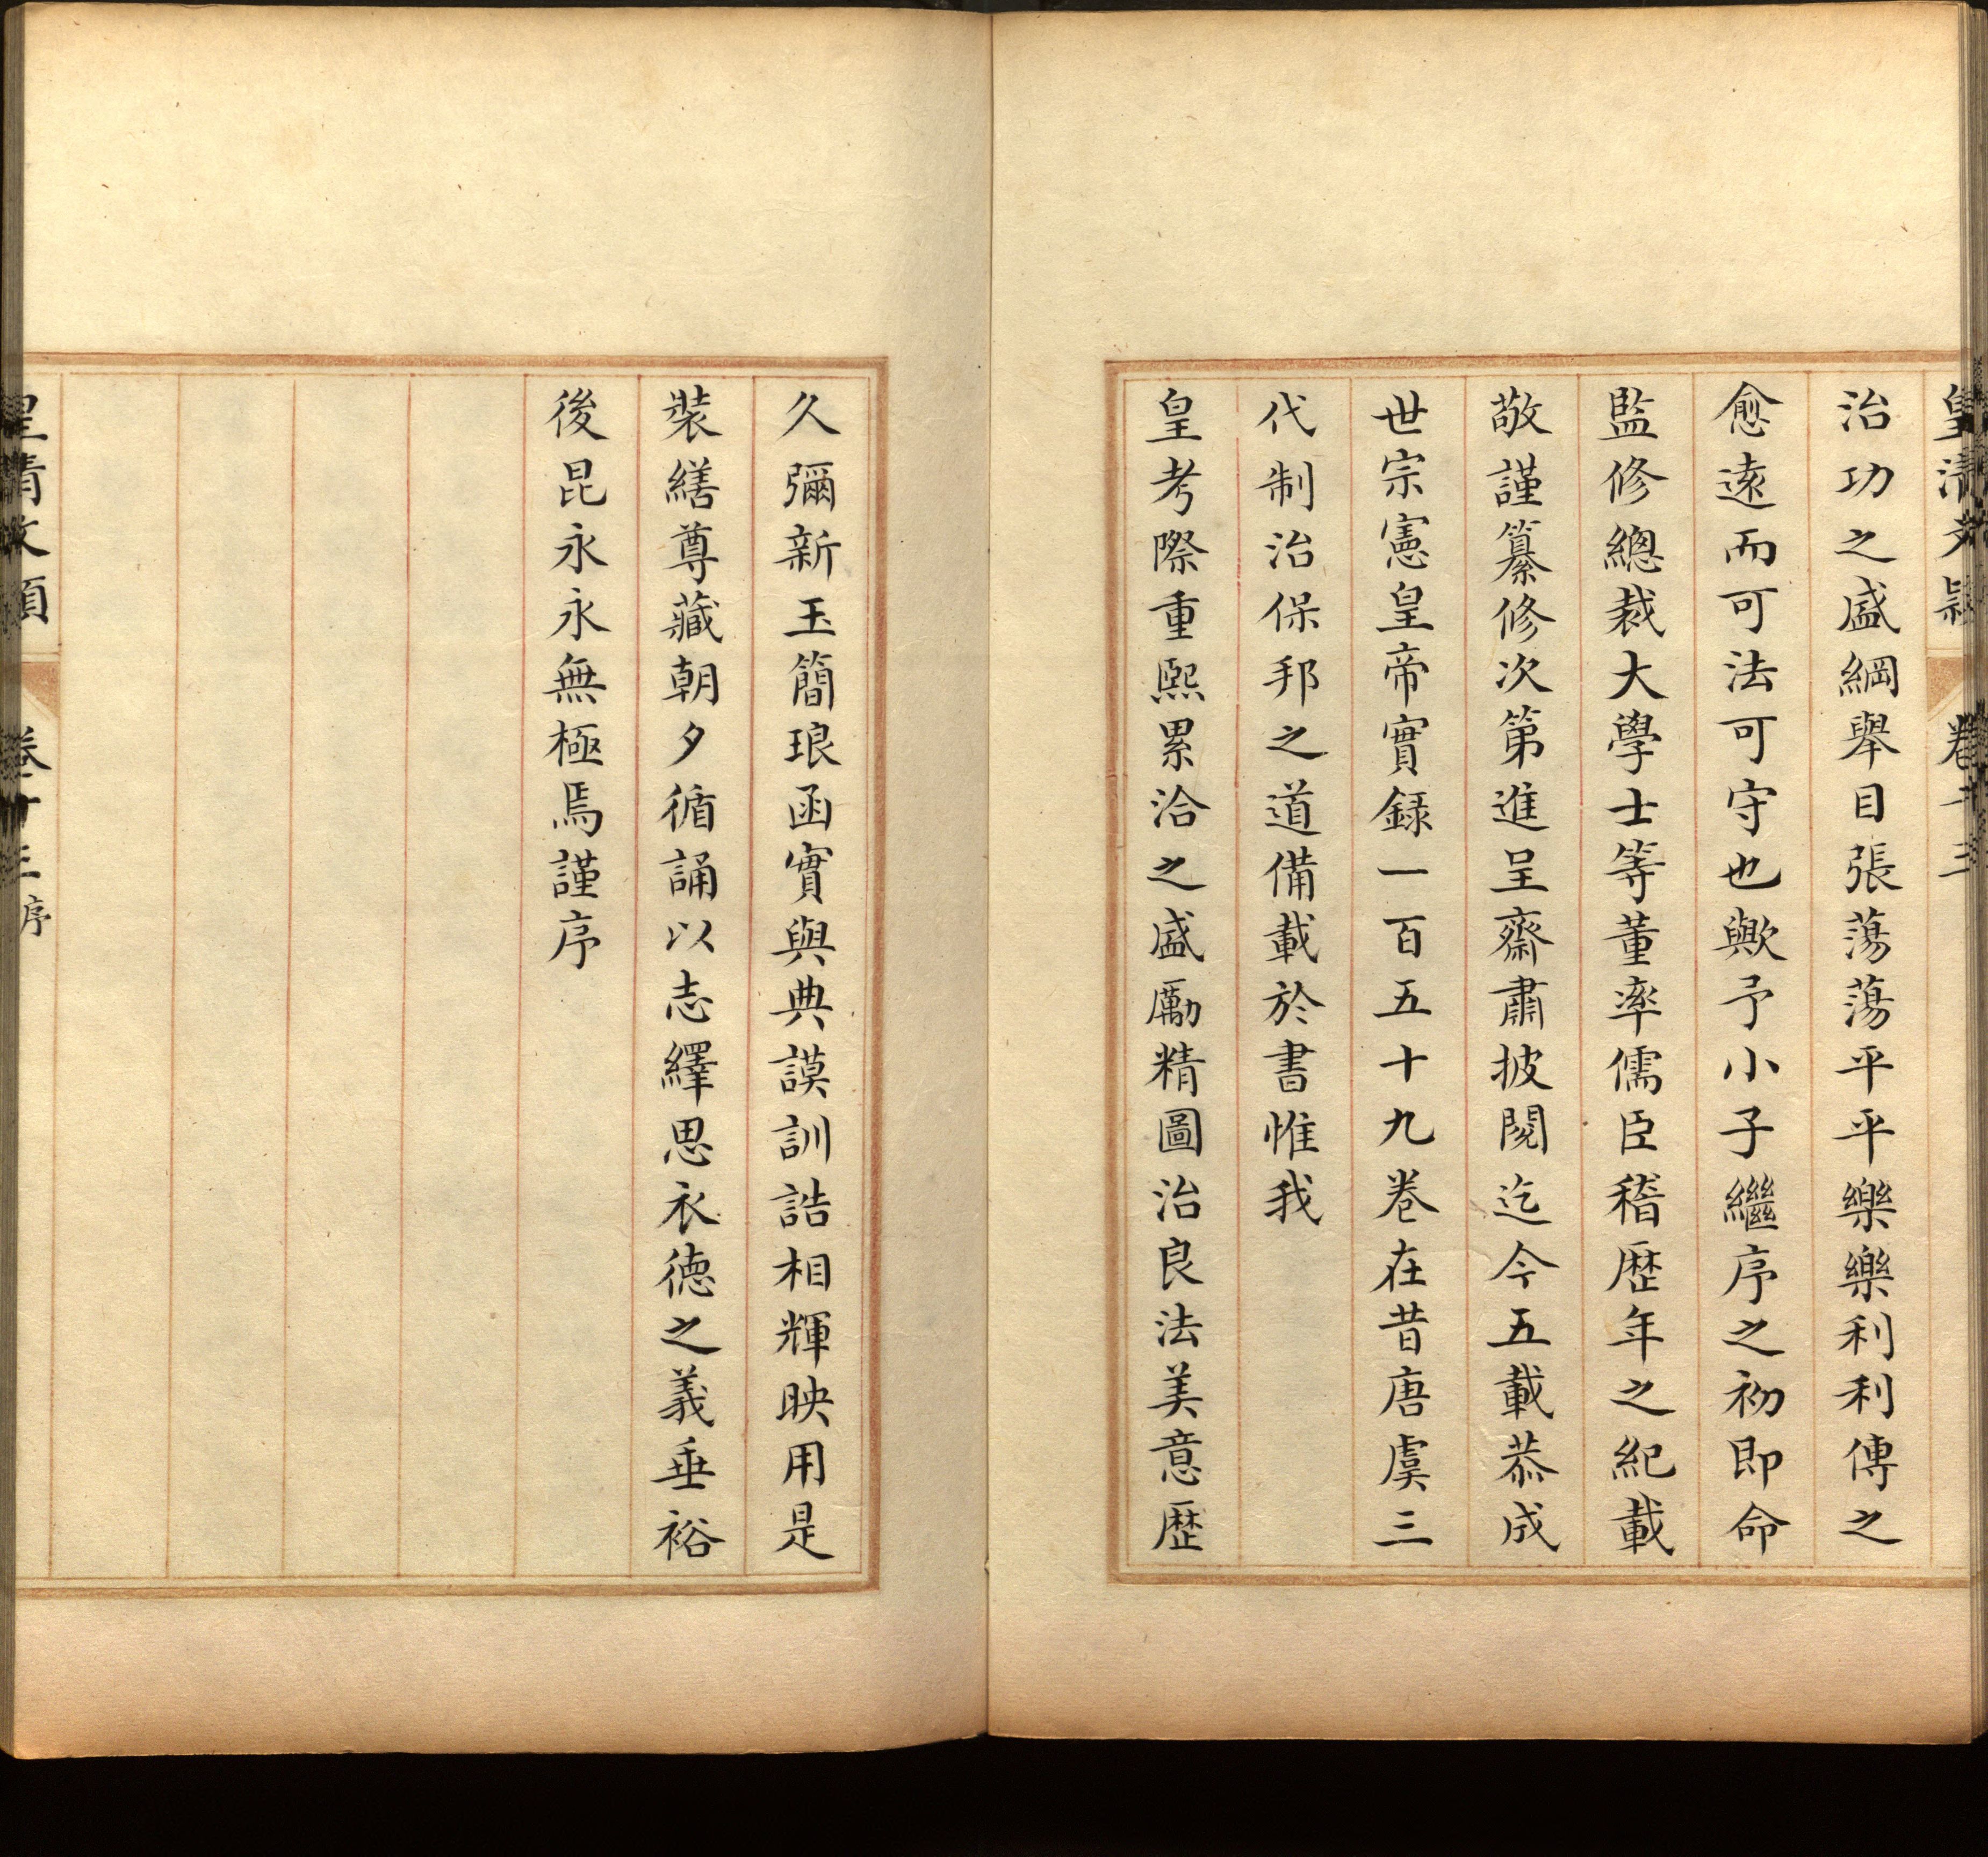 皇清文穎 卷十三
治功之盛綱舉目張蕩蕩平平樂樂利利傳之
愈遠而可法可守也歟予小子繼序之初即命
監修總裁大學士等董率儒臣稽歷年之紀載
敬謹纂修次第進呈齋肅披閱迄今五載恭成
世宗憲皇帝實録一百五十九卷在昔唐虞三
代制治保邦之道備載於書惟我
皇考際重熙累洽之盛勵精圖治良法美意歷
久彌新玉簡琅函實與典謨訓誥相輝映用是
裝繕尊藏朝夕循誦以志繹思衣德之義垂裕
後昆永永無極焉謹序
皇清文穎 卷十三 序